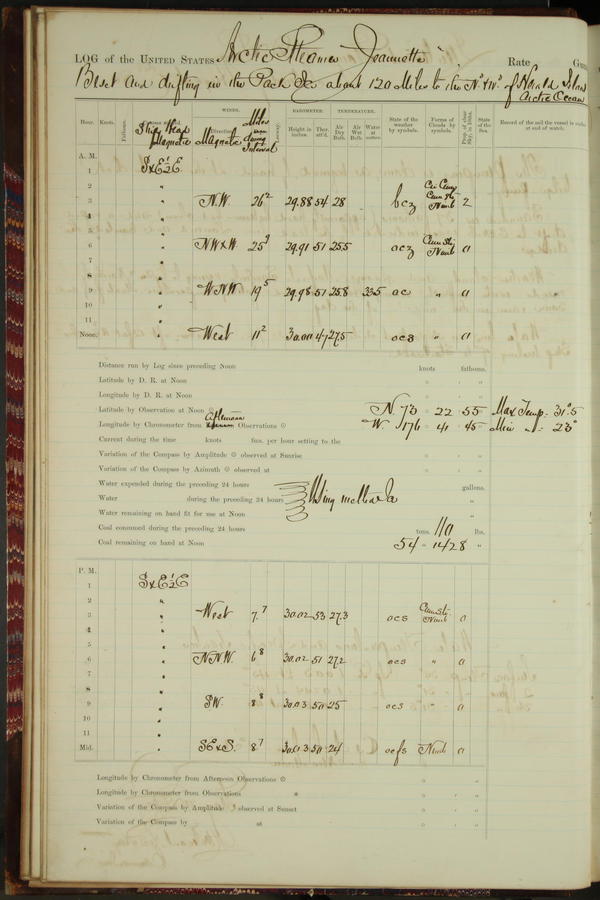 LOG of the UNITED STATES Arctic Steamer "Jeannette" Rate
Beset and drifting in the Pack Ice about 120 Miles to the Nd & Wd of Herald Island
Arctic Ocean
Hour. Knots. Fathoms. Ship's Head Magnetic WINDS. Direction Magnetic Miles during Interval Leeway. BAROMETER. Height in inches. Ther. att'd. TEMPERATURE. Air Dry Bulb. Air Wet Bulb. Water at surface. State of the weather by symbols. Forms of Clouds by symbols. Prop. of clear Sky, in 10ths. State of the Sea. Record of the sail the vessel is under at end of watch.
A. M.
1 S x E ½ E
2 "
3 " N.W. 26² 29.88 54 28 bcz Cum Sti Nimb 2
4 "
5 "
6 " NW x W 25⁹ 29.91 51 25.5 ocz Cum Sti Nimb 0
7 "
8 "
9 " WNW 19⁵ 29.98 51 25.8 33.5 oc " 0
10 "
11 "
Noon. " West 11² 30.00 47 27.5 ocs " 0
Distance run by Log since preceding Noon knots fathoms.
Latitude by D. R. at Noon ° ' "
Longitude by D. R. at Noon ° ' "
Latitude by Observation at Noon N. 73 22 55 Max Temp. 31°.5
Longitude by Chronometer from Afternoon Observations W 176 41 45 Min " 23°
Current during the time knots fms. per hour setting to the
Variation of the Compass by Amplitude observed at Sunrise ° ' "
Variation of the Compass by Azimuth observed at ° ' "
Water expended during the preceding 24 hours gallons.
Water during the preceding 24 hours Using melted Ice "
Water remaining on hand fit for use at Noon "
Coal consumed during the preceding 24 hours tons. 110 lbs.
Coal remaining on hand at Noon 54 - 1428 "
P. M.
1 S x E ½ E
2 "
3 " West 7⁷ 30.02 53 27.3 ocs Cum Sti Nimb 0
4 "
5 "
6 " NNW. 6⁸ 30.02 51 27.2 ocs " 0
7 "
8 "
9 " SW. 8⁸ 30.03 50 25 ocs " 0
10 "
11 "
Mid. " SE x S. 8⁷ 30.03 50 24 ocfs Nimb 0
Longitude by Chronometer from Afternoon Observations ° ' "
Longitude by Chronometer from Observations ° ' "
Variation of the Compass by Amplitude observed at Sunset ° ' "
Variation of the Compass by at ° ' "